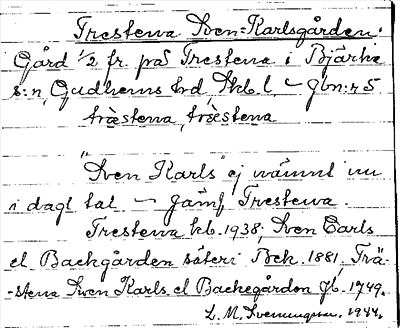 Trestena Sven-Karlsgården.
Gård 1/2 fr. på Trestena i Bjärka
s:n, Gudhems hd, Skb. l. – gbn:r 5
träestena, trèstena
"Sven Karls" ej nämnt nu
i dagl. tal – jämf. Trestena.
Trestena kb. 1938, Sven Carls
el Backgården säteri Bek. 1881, Trä-
-stena Sven Karls el Backegården jb. 1749.
L. M. Svenungsson. 1944.